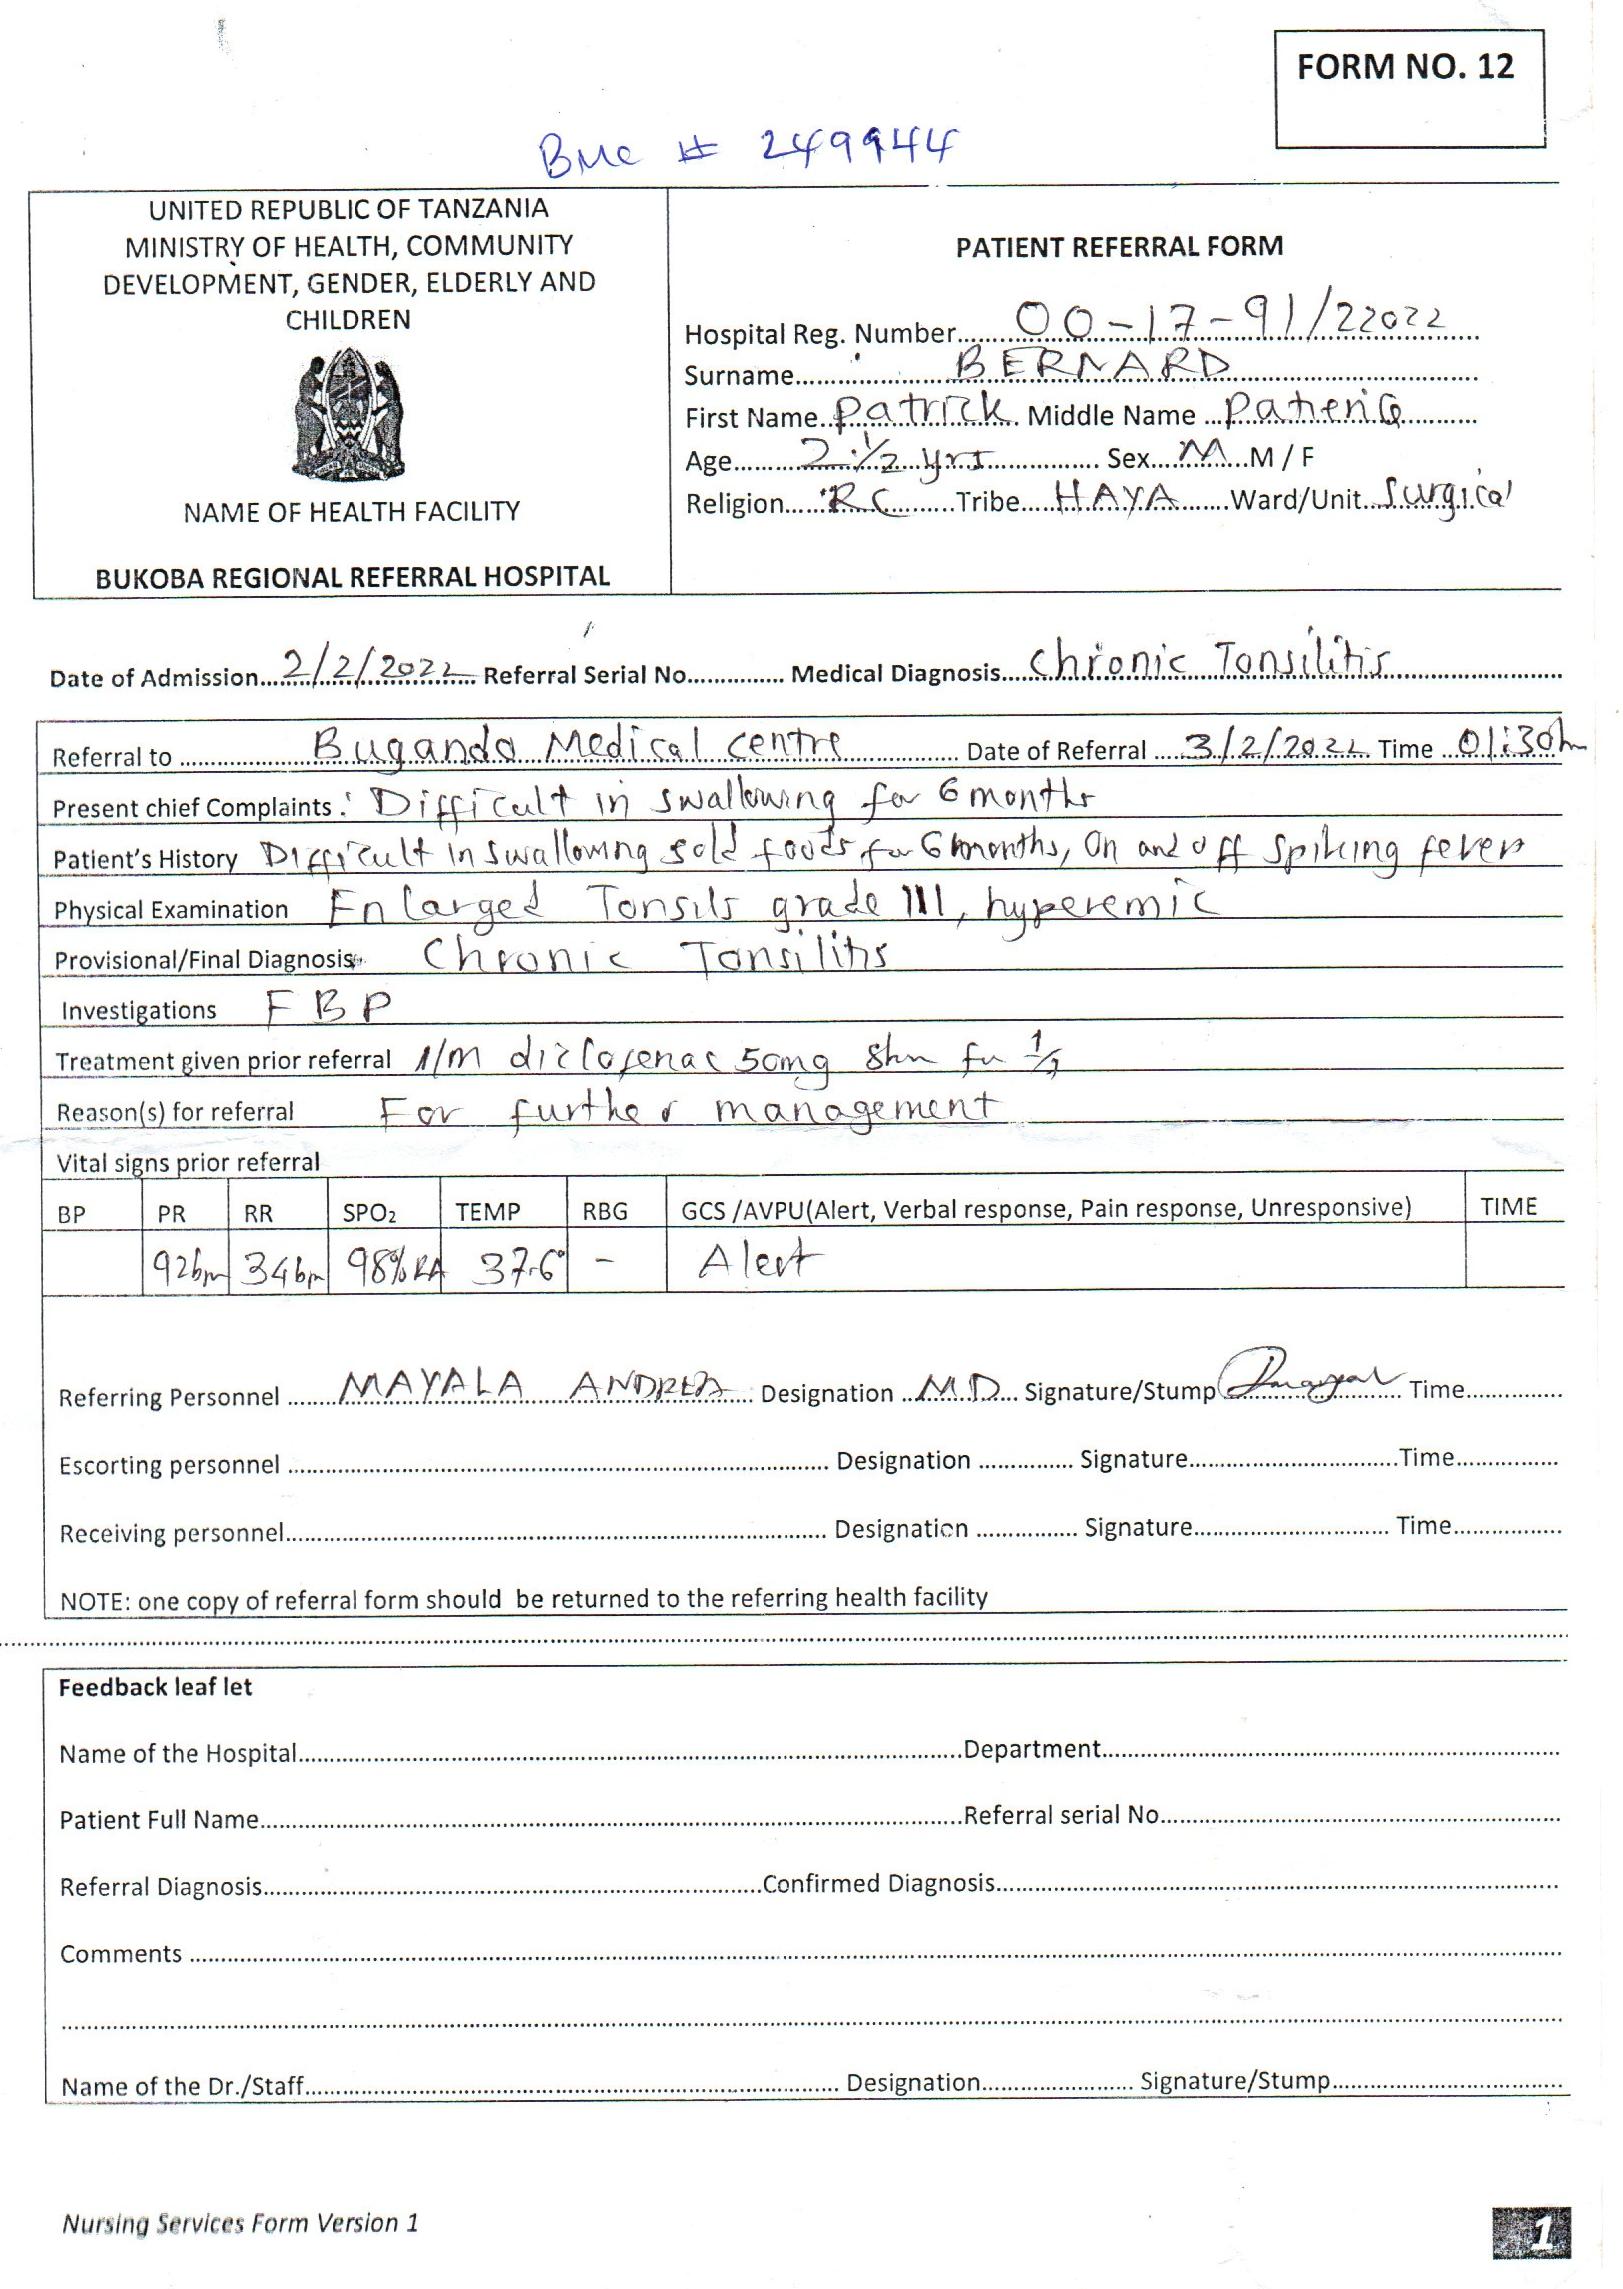 FORM NO. 12
BMC # 249944
UNITED REPUBLIC OF TANZANIA
MINISTRY OF HEALTH, COMMUNITY
DEVELOPMENT, GENDER, ELDERLY AND
CHILDREN
NAME OF HEALTH FACILITY
BUKOBA REGIONAL REFERRAL HOSPITAL
PATIENT REFERRAL FORM
Hospital Reg. Number 00-17-91/22022
Surname BERNARD
First Name Patrick Middle Name
Age 2 1/2 yrs Sex M M / F
Religion RC Tribe HAYA Ward/Unit Surgical
Date of Admission 2/2/2022 Referral Serial No. Medical Diagnosis Chronic Tonsilitis
Referral to Bugando Medical centre Date of Referral 3/2/2022 Time 01:30h
Present chief Complaints : Difficult in swallowing for 6 months
Patient's History Difficult in swallowing sold foods for 6 months, On and off spiking fever
Physical Examination Enlarged Tonsils grade III, hyperemic
Provisional/Final Diagnosis Chronic Tonsilitis
Investigations FBP
Treatment given prior referral I/M diclofenac 50mg
Reason(s) for referral For further management
Vital signs prior referral
BP PR RR SPO2 TEMP RBG GCS /AVPU(Alert, Verbal response, Pain response, Unresponsive) TIME
92bpm 34bpm 98%RA 37.6° - Alert
Referring Personnel MAYALA ANDREA Designation MD Signature/Stump Time
Escorting personnel Designation Signature Time
Receiving personnel Designation Signature Time
NOTE: one copy of referral form should be returned to the referring health facility
Feedback leaf let
Name of the Hospital Department
Patient Full Name Referral serial No
Referral Diagnosis Confirmed Diagnosis
Comments
Name of the Dr./Staff Designation Signature/Stump
Nursing Services Form Version 1
1